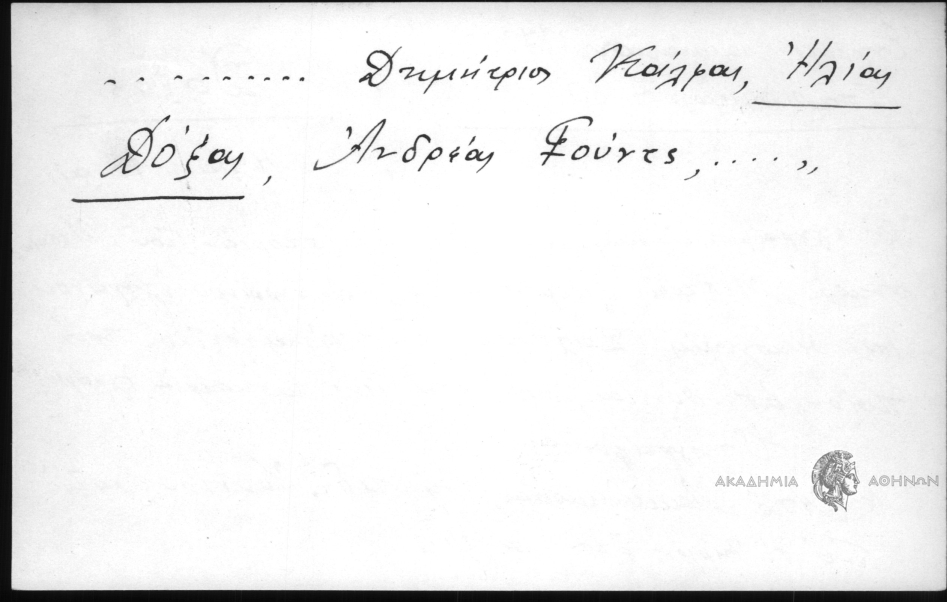 .......... Δημήτριος Κάλμας, Ἠλίας
Δόξας, Ἀνδρέας Φούντς, .... ,,
ΑΚΑΔΗΜΙΑ ΑΘΗΝΩΝ